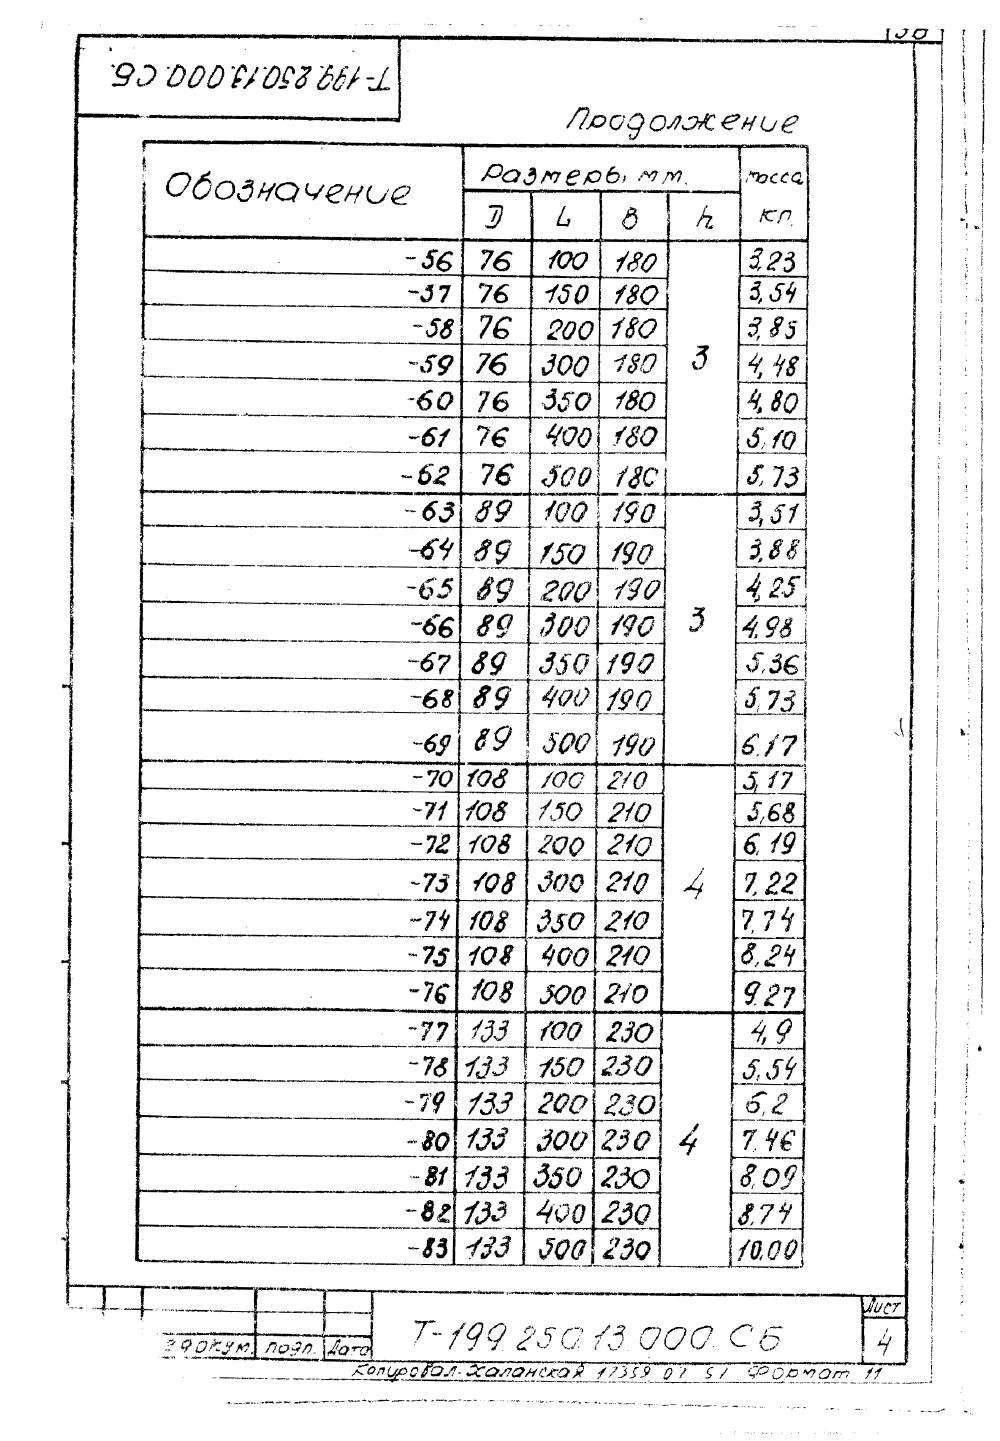 Т-199.250.13.000.СБ
Продолжение
Обозначение Размеры мм. масса
D L B h кг.
-56 76 100 180 3 3,23
-57 76 150 180 3,54
-58 76 200 180 3,85
-59 76 300 180 4,48
-60 76 350 180 4,80
-61 76 400 180 5,10
-62 76 500 180 5,73
-63 89 100 190 3 3,51
-64 89 150 190 3,88
-65 89 200 190 4,25
-66 89 300 190 4,98
-67 89 350 190 5,36
-68 89 400 190 5,73
-69 89 500 190 6,17
-70 108 100 210 4 5,17
-71 108 150 210 5,68
-72 108 200 210 6,19
-73 108 300 210 7,22
-74 108 350 210 7,74
-75 108 400 210 8,24
-76 108 500 210 9,27
-77 133 100 230 4 4,9
-78 133 150 230 5,54
-79 133 200 230 6,2
-80 133 300 230 7,46
-81 133 350 230 8,09
-82 133 400 230 8,74
-83 133 500 230 10,00
докум. подп. Дата
Т-199.250.13.000.СБ
Лист
4
Копировал-Халанская Формат 11